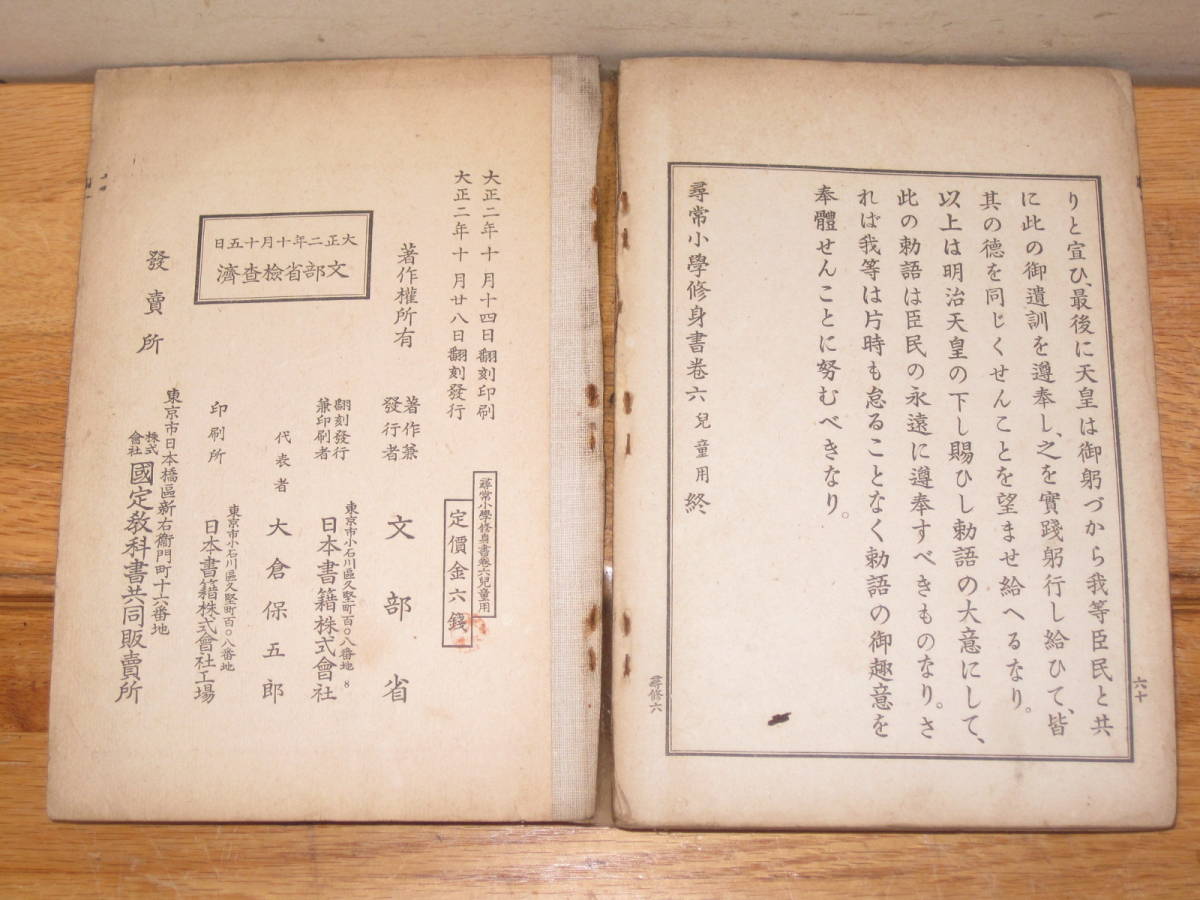 りと宣ひ、最後に天皇は御躬づから我等臣民と共
に此の御遺訓を遵奉し、之を實踐躬行し給ひて、皆
其の德を同じくせんことを望ませ給へるなり。
以上は明治天皇の下し賜ひし勅語の大意にして、
此の勅語は臣民の永遠に遵奉すべきものなり。さ
れば我等は片時も怠ることなく勅語の御趣意を
奉體せんことに努むべきなり。
尋常小學修身書卷六 兒童用 終
六十
尋修六
大正二年十月十四日翻刻印刷
大正二年十月廿八日翻刻發行
尋常小學修身書卷六兒童用
定價金六錢
著作權所有
著作兼
發行者
文部省
翻刻發行
兼印刷者
東京市小石川區久堅町百〇八番地
8
日本書籍株式會社
代表者
大倉保五郎
日五十月十年二正大
濟查檢省部文
印刷所
東京市小石川區久堅町百〇八番地
日本書籍株式會社工場
發賣所
東京市日本橋區新右衞門町十六番地
株式
會社
國定敎科書共同販賣所